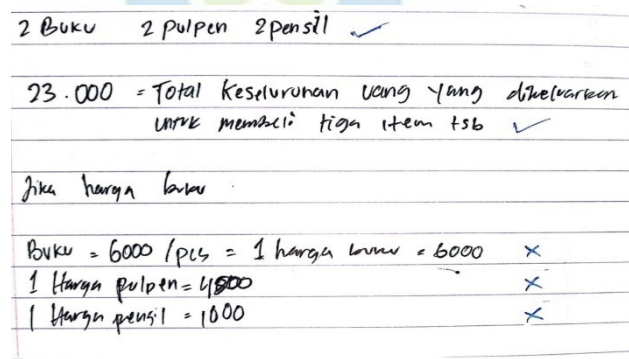 2 Buku 2 Pulpen 2 pensil ✓
23.000 = Total Keseluruhan uang yang dikeluarkan
untuk membeli tiga item tsb ✓
Jika harga buku
Buku = 6000 /pcs = 1 harga buku = 6000 ×
1 Harga pulpen = 4500 ×
1 Harga pensil = 1000 ×